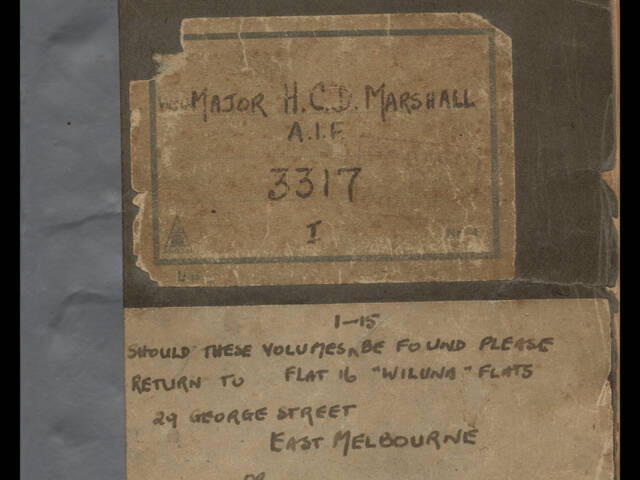 MAJOR H.C.D. MARSHALL
A.I.F
3317
I
1-15
SHOULD THESE VOLUMES ^ BE FOUND PLEASE
RETURN TO FLAT 16 "WILUNA" FLATS
29 GEORGE STREET
EAST MELBOURNE
OR